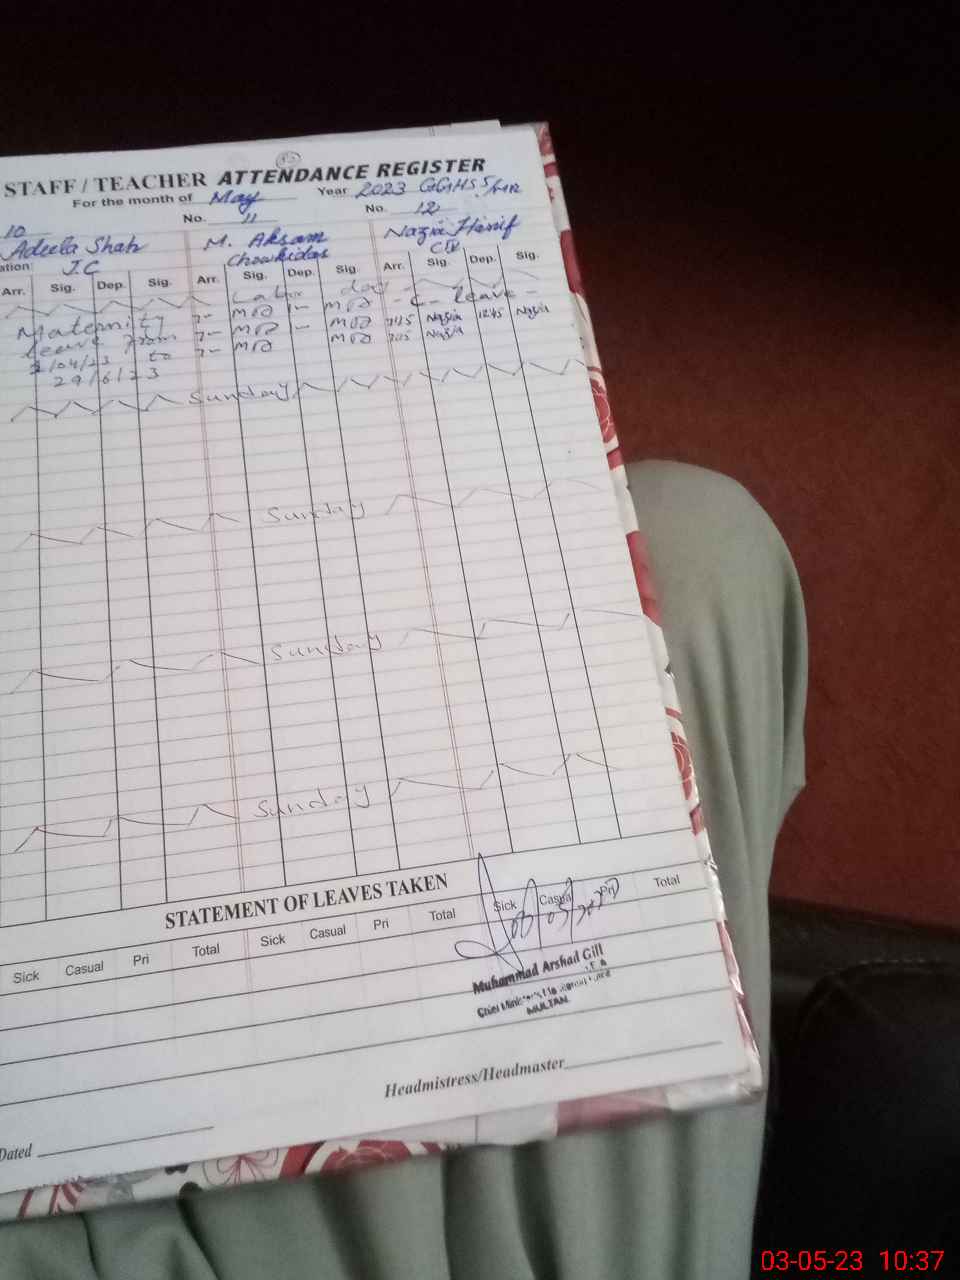 STAFF / TEACHER ATTENDANCE REGISTER
For the month of May Year 2023
10 No. 11 No. 12
Adeela Shah M. Aksam Nazia Hanif
ation J.C Chowkidar
Arr. Sig. Dep. Sig. Arr. Sig. Dep. Sig. Arr. Sig. Dep. Sig.
Labor day
Maternity - C - leave -
leave from 745 Nazia 1245 Nazia
/04/23 to Nazia
29/6/23
Sunday
Sunday
Sunday
Sunday
STATEMENT OF LEAVES TAKEN
Sick Casual Pri Total Sick Casual Pri Total Sick Casual Pri Total
Muhammad Arshad Gill
MULTAN.
Headmistress/Headmaster
Dated
03-05-23 10:37